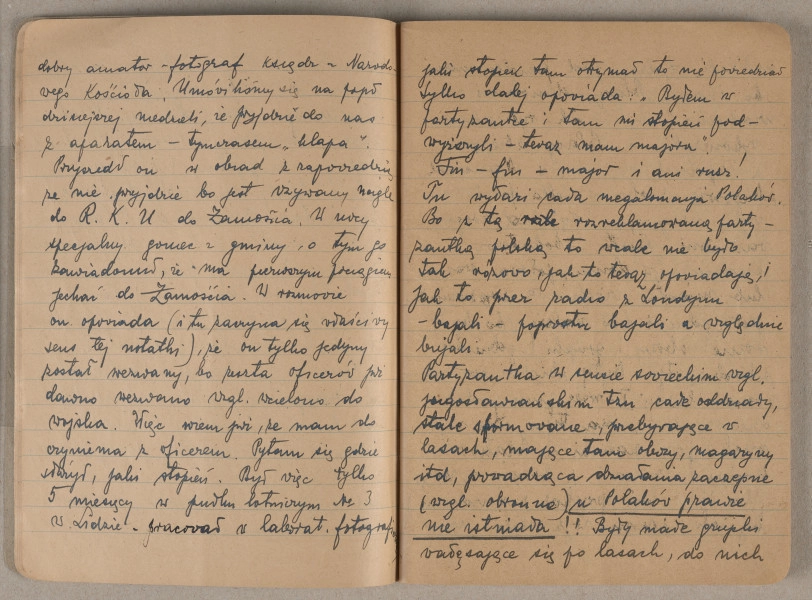 dobry amator-fotograf ksiądz z Narodo-
wego Kościoła. Umówiliśmy się na popoł
dzisiejszej niedzieli, że przyjdzie do nas
z aparatem – tymczasem „klapa”.
Przyszedł on w obiad z zapowiedzią
że nie przyjdzie bo jest wzywany nagle
do R.K.U do Zamościa. W nocy
specjalny goniec z gminy o tym go
zawiadomił, że ma pierwszym pociągiem
jechać do Zamościa. W rozmowie
on opowiada (i tu zaczyna się właściwy
sens tej notatki), że on tylko jedyny
został wezwany, bo reszta oficerów już
dawno wezwano wzgl. wcielono do
wojska. Więc wiem już, że mam do
czynienia z oficerem. Pytam się gdzie
służył, jaki stopień. Był więc tylko
5 miesięcy w pułku lotniczym Nr 3
w Lidzie – pracował w laborat. fotografi
jaki stopień tam otrzymał to nie powiedział
tylko dalej opowiada: „Byłem w
partyzantce i tam mi stopień pod-
wyższyli – teraz mam majora”.
Fiu – fiu – major i ani rusz!
Tu wyłazi cała megalomania Polaków.
Bo z tą rozreklamowaną party-
zantką polską to wcale nie było
tak różowo, jak to teraz opowiadają,!
Jak to przez radio z Londynu
– bajali – poprostu bajali a względnie
bujali.
Partyzantka w sensie sowieckim wzgl.
jugosławiańskim tzn całe oddziały,
stale sformowane, przebywające w
lasach, mające tam obozy, magazyny
itd, prowadząca działania zaczepne
(wzgl. obronne) u Polaków prawie
nie istniała!! Były małe grupki
wałęsające się po lasach, do nich